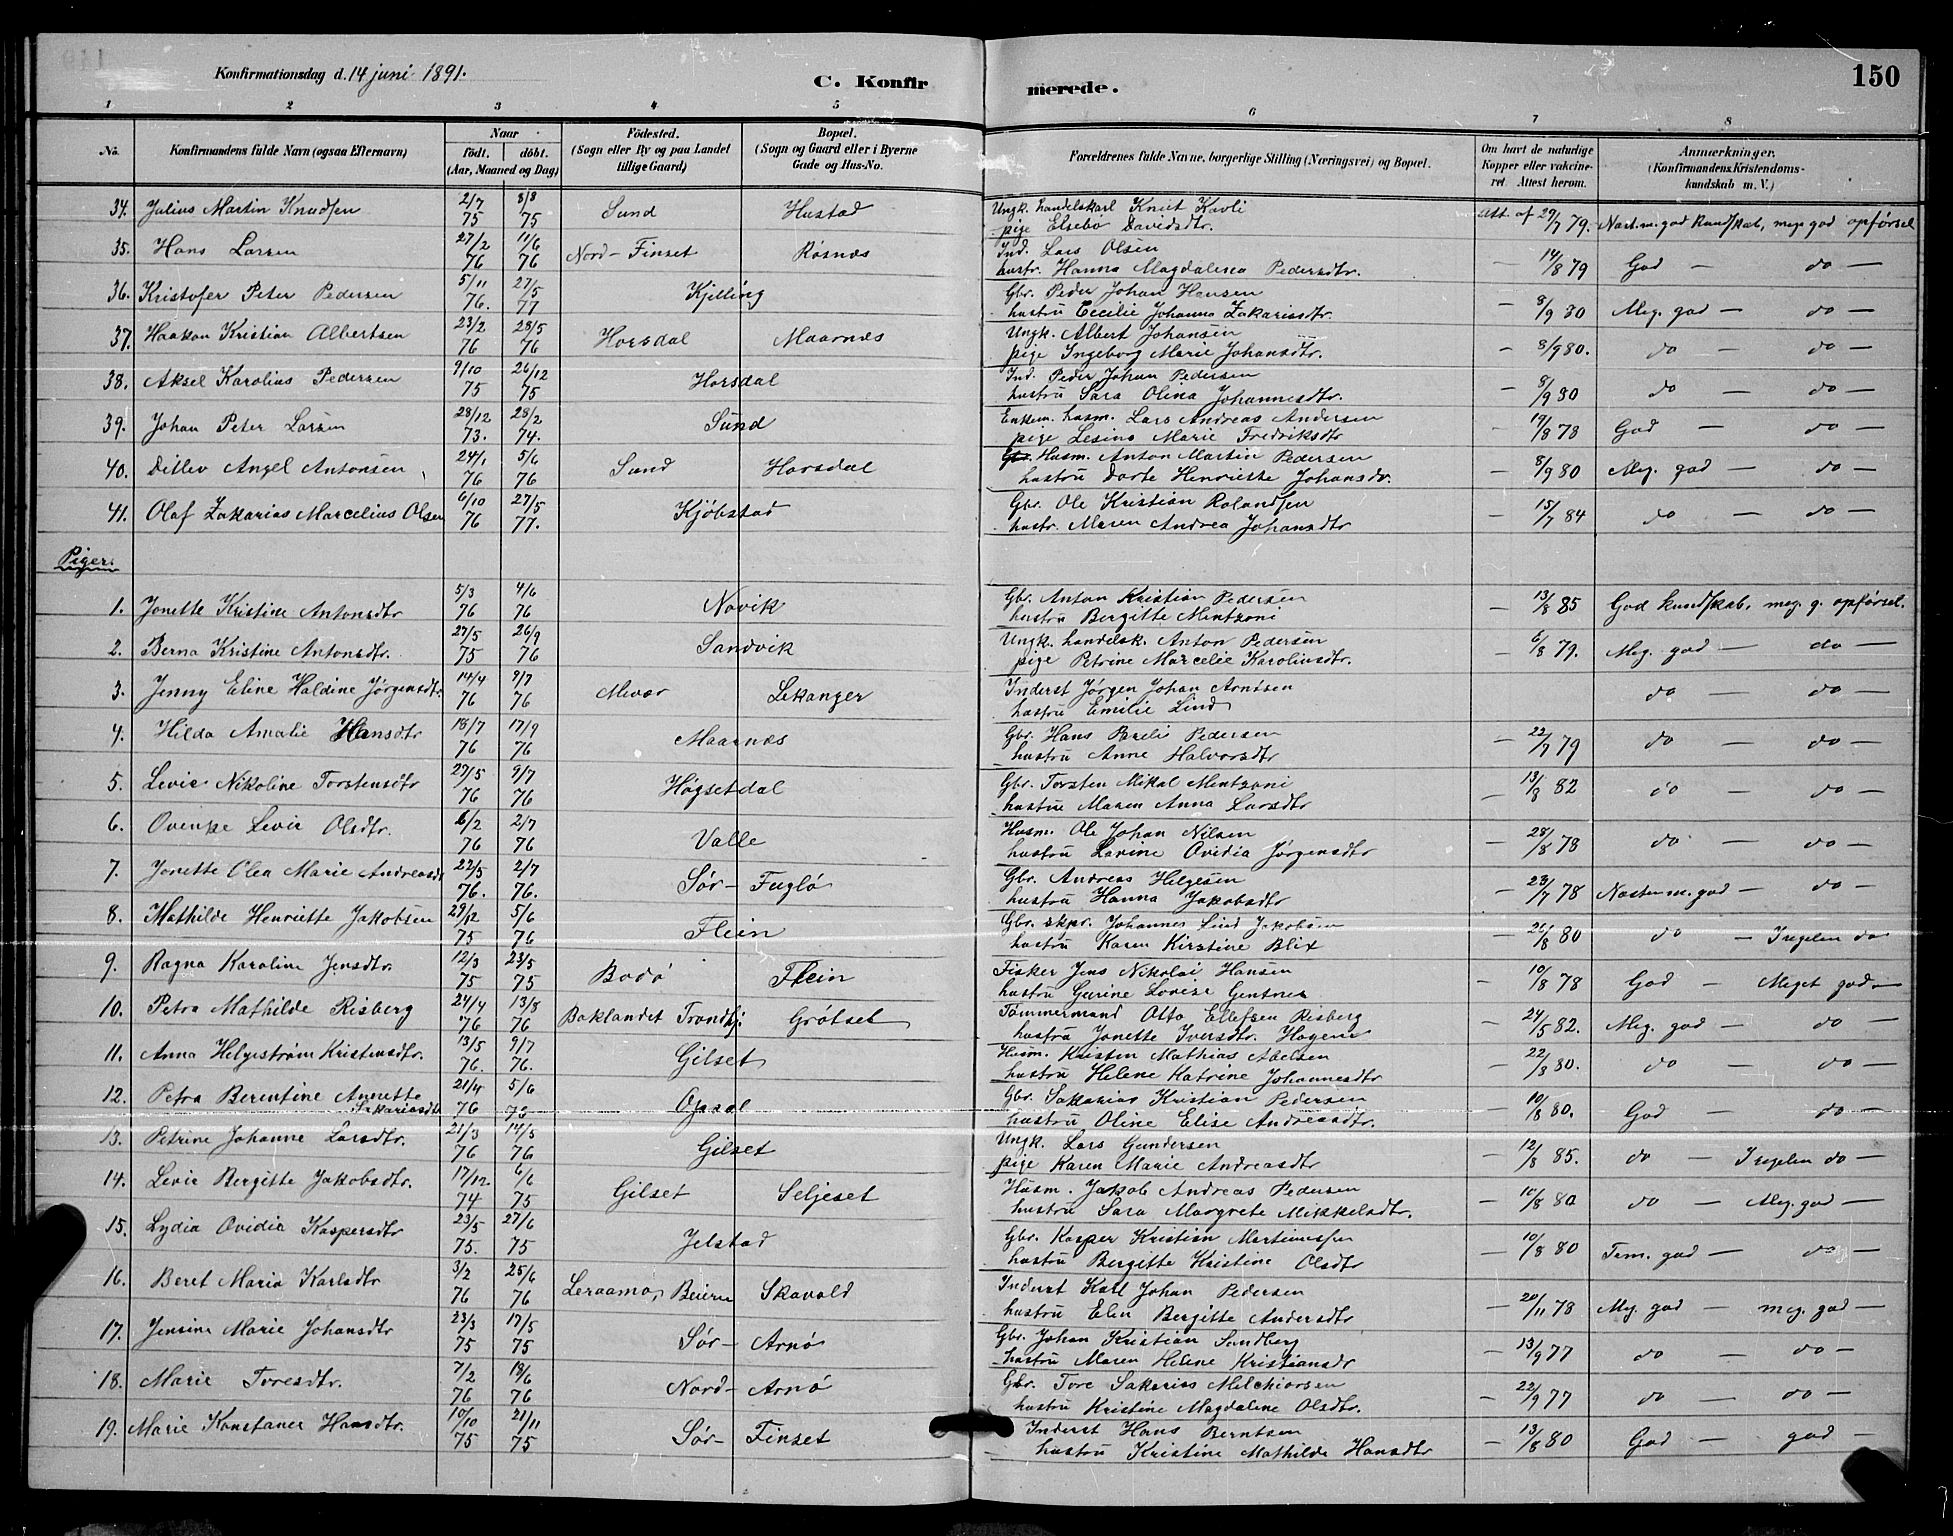 Konfirmationsdag d. 14 juni 1891.
C. Konfirmerede.
150
1 2 3 4 5 6 7 8
No.
Konfirmandens fulde Navn (ogsaa Efternavn)
Naar
födt. döbt.
(Aar, Maaned og Dag)
Födested.
(Sogn eller By og paa Landet
tillige Gaard)
Bopæl.
(Sogn og Gaard eller i Byerne
Gade og Hus-No.
Forældrenes fulde Navne, borgerlige Stilling (Næringsvei) og Bopæl.
Om havt de naturlige
Kopper eller vakcine-
ret. Attest herom.
Anmærkninger.
(Konfirmandens Kristendoms-
kundskab m. V.)
34. Julius Martin Knudsen 2/7 75 8/8 75 Sund Hustad Ungk. handelskarl Knut Kavli
pige Elsebø Davidsdtr. Att. af 29/7 79. Næst. m. god kundskab, meg. god opførsel
35. Hans Larsen 27/2 76 11/6 76 Nord-Finset Røsnæs Ind. Lars Olsen
hustr. Hanna Magdalena Pedersdtr. – 14/8 79 God – do –
36. Kristofer Peter Pedersen 5/11 76. 27/5 77 Kjelling Gbr. Peder Johan Hansen
hustru Cecilie Johanna Zakariasdtr. – 8/9 80 Meg. god – do –
37. Haakon Kristian Albertsen 23/2 76 28/5 76 Horsdal Maarnæs Ungk. Albert Johansen
pige Ingeborg Marie Johansdtr. – 8/9 80. do – do –
38. Aksel Karolius Pedersen 9/10 75 26/12 75 Horsdal Ind. Peder Johan Pedersen
hustru Sara Olina Johannesdtr. – 8/9 80 do – do –
39. Johan Peter Larsen 28/12 73. 28/2 74. Sund Enkem. husm. Lars Andreas Andersen
pige Lesina Marie Fredriksdtr – 19/8 78 God – do –
40. Ditlev Angel Antonsen 24/1 76 5/6 76 Sund Horsdal Gbr. Husm. Anton Martin Pedersen
hustru Dorte Henriette Johansdr. – 8/9 80 Meg. god – do –
41. Olaf Zakarias Marcelius Olsen 6/10 76 27/5 77. Kjøbstad Gbr. Ole Kristian Rolandsen
hustr. Maren Andrea Johansdtr – 15/7 84 do – do –
Piger:
1. Jonette Kristine Antonsdtr 5/3 76 4/6 76 Novik Gbr. Anton Kristian Pedersen
hustru Bergitte Mentzoni – 13/8 85 God kundskab, meg. g. opførsel.
2. Berna Kristine Antonsdtr. 27/5 75 26/9 76 Sandvik Ungk. handelsk. Anton Pedersen
pige Petrine Marcelie Karoliusdtr. – 6/8 79. Meg. god – do –
3. Jenny Eline Haldine Jørgensdtr. 14/4 76 9/7 76 Mevær Lekanger Inderst Jørgen Johan Arntsen
hustru Emilie Lind do – do –
4. Hilda Amalie Hansdtr 18/7 76 17/9 76 Maarnæs Gbr. Hans Pedersen
hustru Anne Halvorsdtr – 22/7 79 do – do –
5. Levie Nikoline Torstensdtr 27/5 76 9/7 76 Høgsetdal Gbr. Torsten Mikal Mentzoni
hustru Maren Anna Larsdtr – 13/8 82 do – do –
6. Levie Olsdtr. 6/2 76 2/7 76 Valle Husm. Ole Johan Nilsen
hustru Lavine Ovidia Jørgensdtr – 28/8 78 do – do –
7. Jonette Olea Marie Andreasdt 22/5 76. 2/7 76. Sør-Fuglø Gbr. Andreas Helgesen
hustru Hanna Jakobsdtr – 23/7 78 Næsten m. god – do –
8. Mathilde Henriette Jakobsen 29/12 75 5/6 76 Flein Gbr. skpr. Johannes Lind Jakobsen
hustru Karen Kirstine Blix – 26/8 80 do – I regelen do
9. Ragna Karoline Jensdtr. 12/3 75 23/5 75 Bodø Flein Fisker Jens Nikolai Hansen
hustru Gurine Lovise Gentnes – 10/8 78 God – Meget god –
10. Petra Mathilde Risberg 24/4 76 13/8 76 Baklandet Trondhj: Grøtset Tømmermand Otto Ellefsen Risberg
hustru Jonette Iversdtr. Hagene – 24/5 82. Meg. god – do –
11. Anna Helgestrøm Kristensdtr. 13/5 76. 9/7 76. Gilset Husm. Kristen Mathias Abelsen
hustru Helene Katrine Johannesdtr – 22/8 80. do – do –
12. Petra Berentine Annette
Sakariasdtr 21/4 76 5/6 Opsal Gbr. Sakarias Kristian Pedersen
hustru Oline Elise Andreasdtr. – 10/8 80. God – do –
13. Petrine Johanne Larsdtr. 21/3 76 14/5 76 Gilset Ungk. Lars Gundersen
pige Karen Marie Andreasdtr – 12/8 85. do – I regelen do –
14. Levie Bergitte Jakobsdtr. 17/12. 74 6/6 75 Gilset Seljeset Husm. Jakob Andreas Pedersen
hustru Sara Margrete Mikkelsdtr. – 10/8 80 do – Meg. god –
15. Lydia Ovidia Kaspersdtr 23/5 75. 27/6 75 Jelstad Gbr. Kasper Kristian Martinussen
hustru Bergitte Kristine Olsdtr – 10/8 80 Tem. god – do –
16. Beret Maria Karlsdtr 3/2 76 25/6 76 Leraamo, Beiern Skavold Inderst Karl Johan Pedersen
hustru Elen Bergitte Andersdtr – 20/11 78 Meg. god – meg. god –
17. Jensine Marie Johansdtr 23/3 75 17/5 75 Sør-Arnø Gbr. Johan Kristian Sundberg
hustru Maren Helene Kristiansdr – 13/9 77 do – do –
18. Marie Toresdtr. 7/2 76 18/6 76 Nord-Arnø Gbr. Tore Sakarias Melchiorsen
hustru Kristine Magdalene Olsdtr. – 22/9 77 do – do –
19. Marie Konstance Hansdtr. 10/10 75 21/11 75 Sør-Finset Inderst Hans Berntsen
hustru Kristine Mathilde Hansdtr – 13/8 80 God – god –